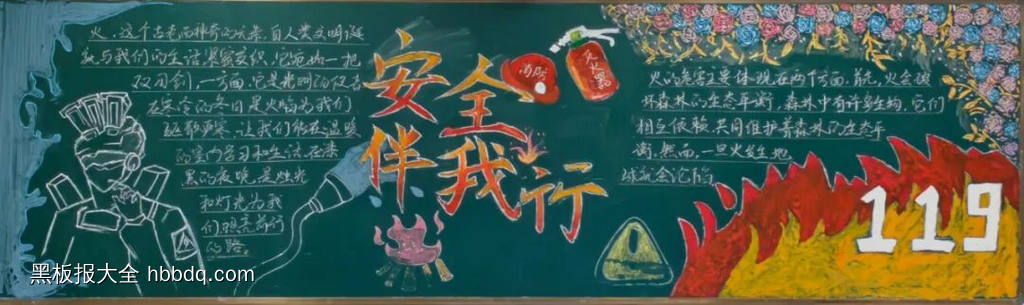 火,这个古老而神奇的元素,自人类文明诞
起,与我们的生活紧密交织。它宛如一把
双刃剑,一方面,它是光明的使者
在寒冷的冬日是火焰为我们
驱散严寒,让我们能在温暖
的室内学习和生活。在漆
黑的夜晚,是烛光
和灯光为我
们照亮前行
的路。
安全
伴我行
消防
灭火器
火的危害主要体现在两个方面。首先,火会破
坏森林的生态平衡,森林中有许多生物,它们
相互依赖,共同维护着森林的生态平
衡。然而,一旦火发生地
球就会沦陷
119
黑板报大全 hbbdq.com